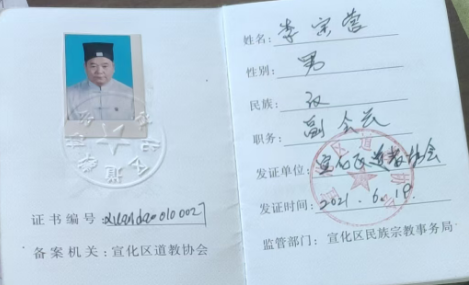 证书编号 xuandao010002
备案机关：宣化区道教协会
姓名：李宗营
性别：男
民族：汉
职务：副会长
发证单位：宣化区道教协会
发证时间：2021.6.18
监管部门：宣化区民族宗教事务局